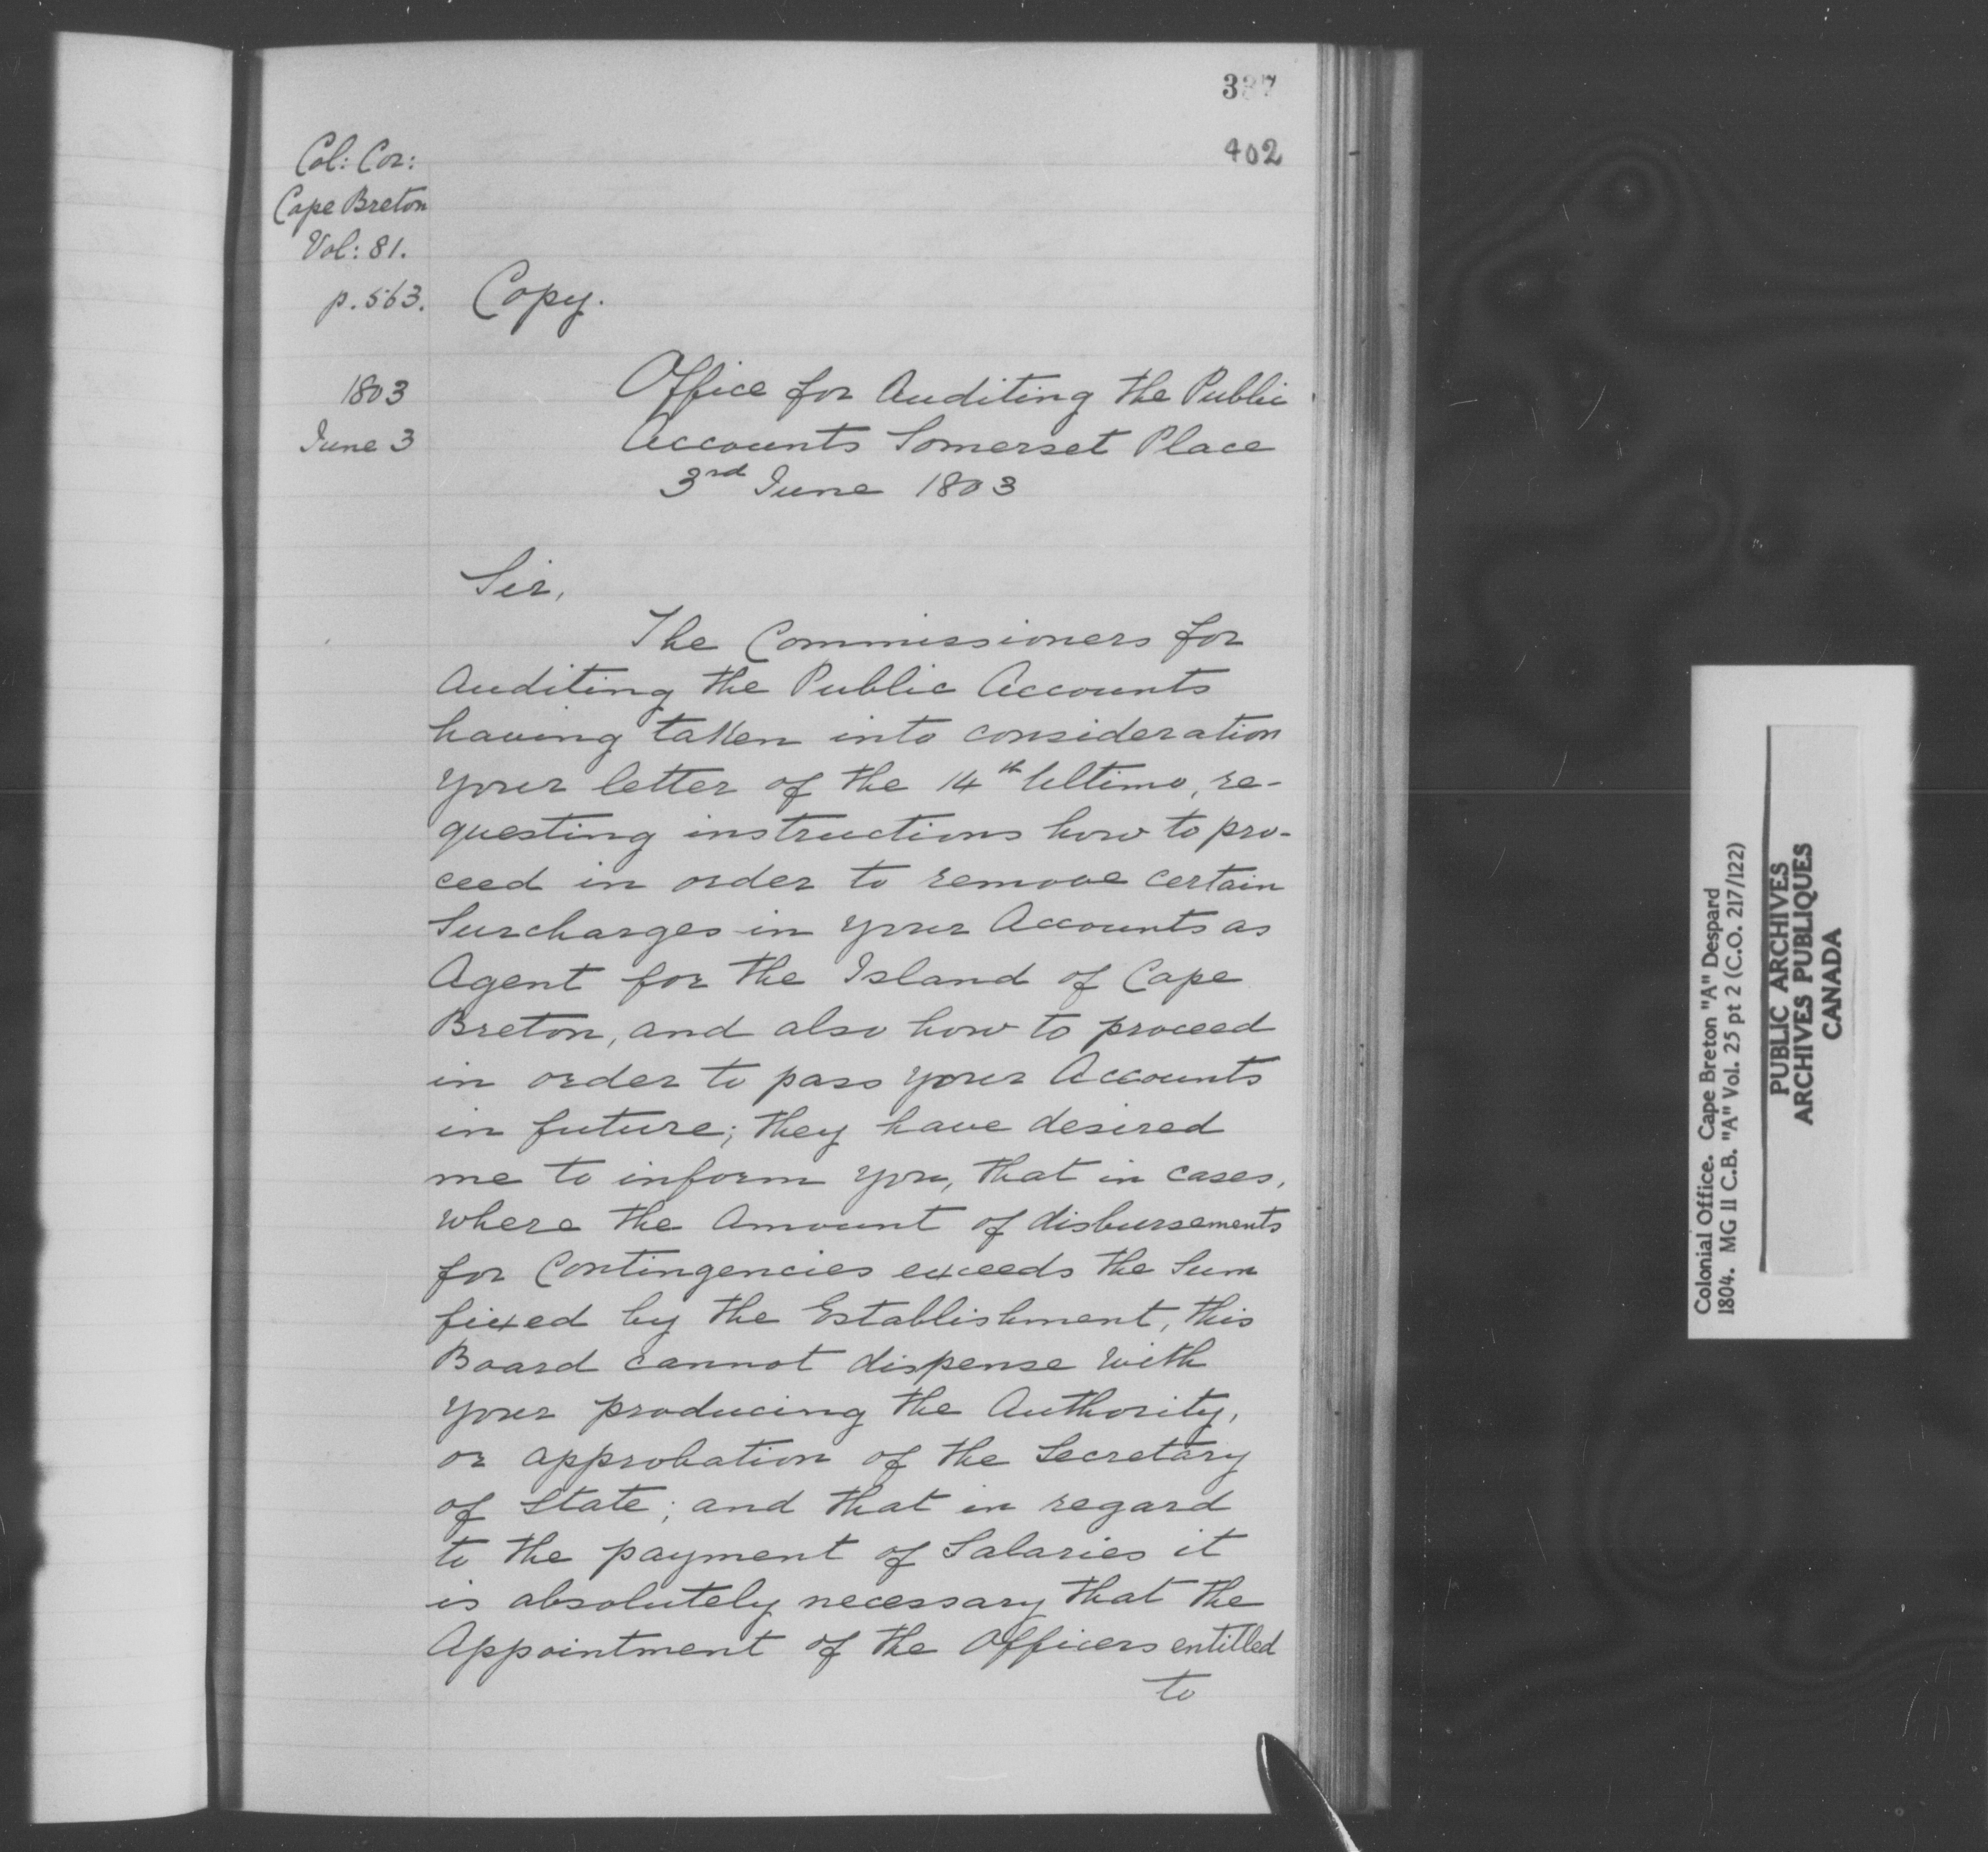 337
402
Col: Cor:
Cape Breton
Vol: 81.
p. 563.
Copy.
1803
June 3
Office for Auditing the Public
Accounts Somerset Place
3rd June 1803
Sir,
The Commissioners for
Auditing the Public Accounts
having taken into consideration
your letter of the 14th Ultimo, re-
questing instructions how to pro-
ceed in order to remove certain
Surcharges in your Accounts as
Agent for the Island of Cape
Breton, and also how to proceed
in order to pass your Accounts
in future; they have desired
me to inform you, that in cases,
where the Amount of disbursements
for Contingencies exceeds the Sum
fixed by the Establishment, this
Board cannot dispense with
your producing the Authority,
or approbation of the Secretary
of State; and that in regard
to the payment of Salaries it
is absolutely necessary that the
Appointment of the Officers entitled
to
Colonial Office. Cape Breton "A" Despard
1804. MG 11 C.B. "A" Vol. 25 pt 2 (C.O. 217/122)
PUBLIC ARCHIVES
ARCHIVES PUBLIQUES
CANADA